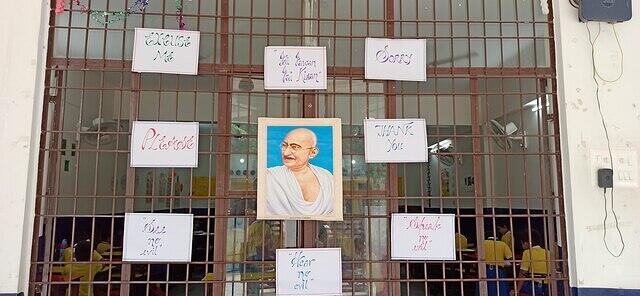 Excuse
Me
"Jai Jawan
Jai Kisan"
Sorry
Please
Thank
You
"See
no
evil"
"Hear
no
evil"
"Speak
no
evil"